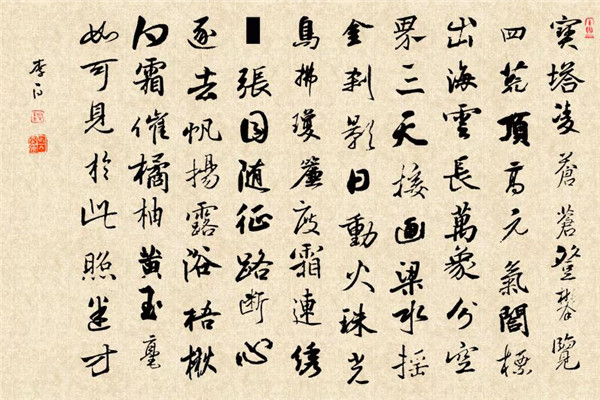 寶塔凌蒼蒼登攀覽
四荒頂高元氣閤標
出海雲長萬象分空
界三天接画梁水摇
金刹影日動火珠光
鳥拂瓊簾度霜連綉
張目随征路断心
逐去帆揚露浴梧楸
白霜催橘柚黄玉毫
如可見於此照迷方
李白